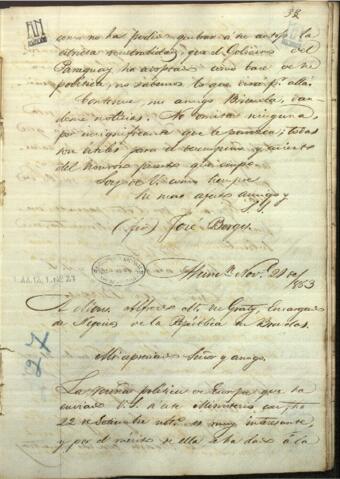 32
como no ha podido quebrar á su antojo la
estricta neutralidad, que el Gobierno del
Paraguay ha adoptado como base de su
política, no sabemos lo que dirá pr. allá.
Continúe, mi amigo Brizuela, dan
dome noticias. No omita ninguna,
por insignificante que le parezca; todas
son útiles para el desempeño y acierto
del honroso puesto que ocupa.
Soy de V. como siempre
su mas afecto amigo y
S. S.
(fdo) José Berges.
Nov.e 21 de
1863
A Mons. Alfredo M. du Graty, Encargado
de Negocios de la República en Bruselas.
Mi apreciado Señor y amigo.
La reseña política de Europa que ha
enviado V. S. á este Ministerio con fha
22 de Setiembre ulto. es muy interesante,
y por el mérito de ella se ha dado á la
27